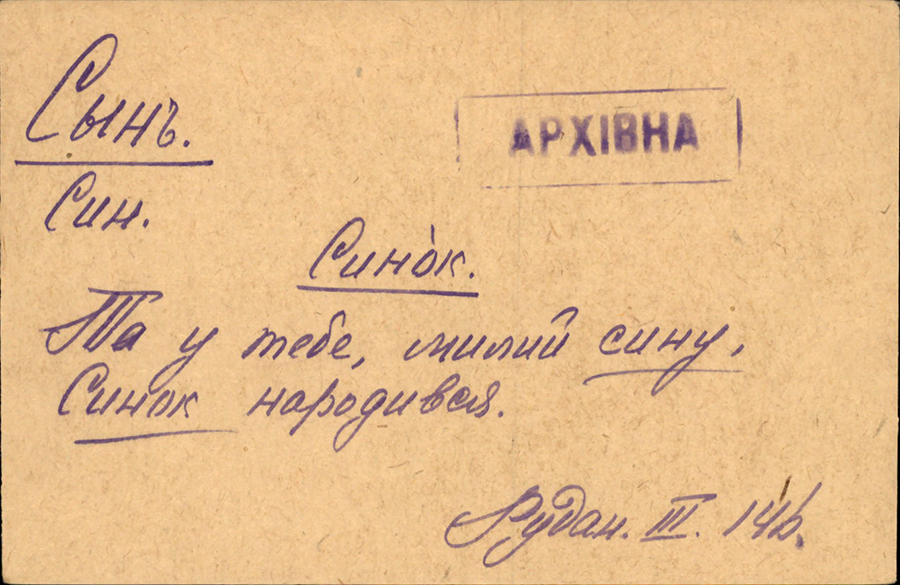 Сынъ.
АРХІВНА
Син.
Сино́к.
Та у тебе, милий сину,
Синок народився.
Рудан. III.